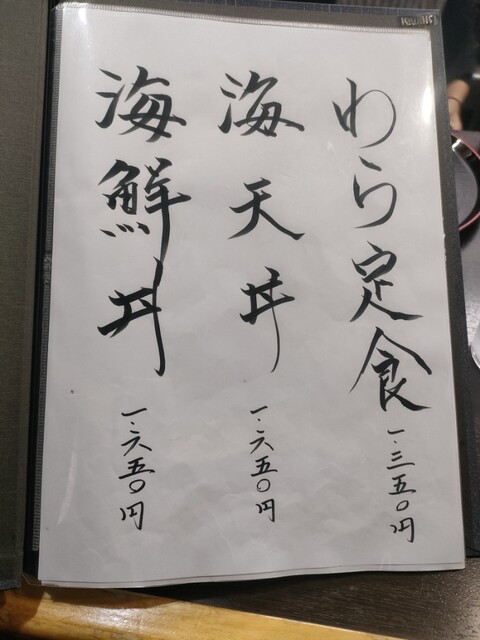 わら定食 一.三五〇円
海天丼 一.六五〇円
海鮮丼 一.六五〇円